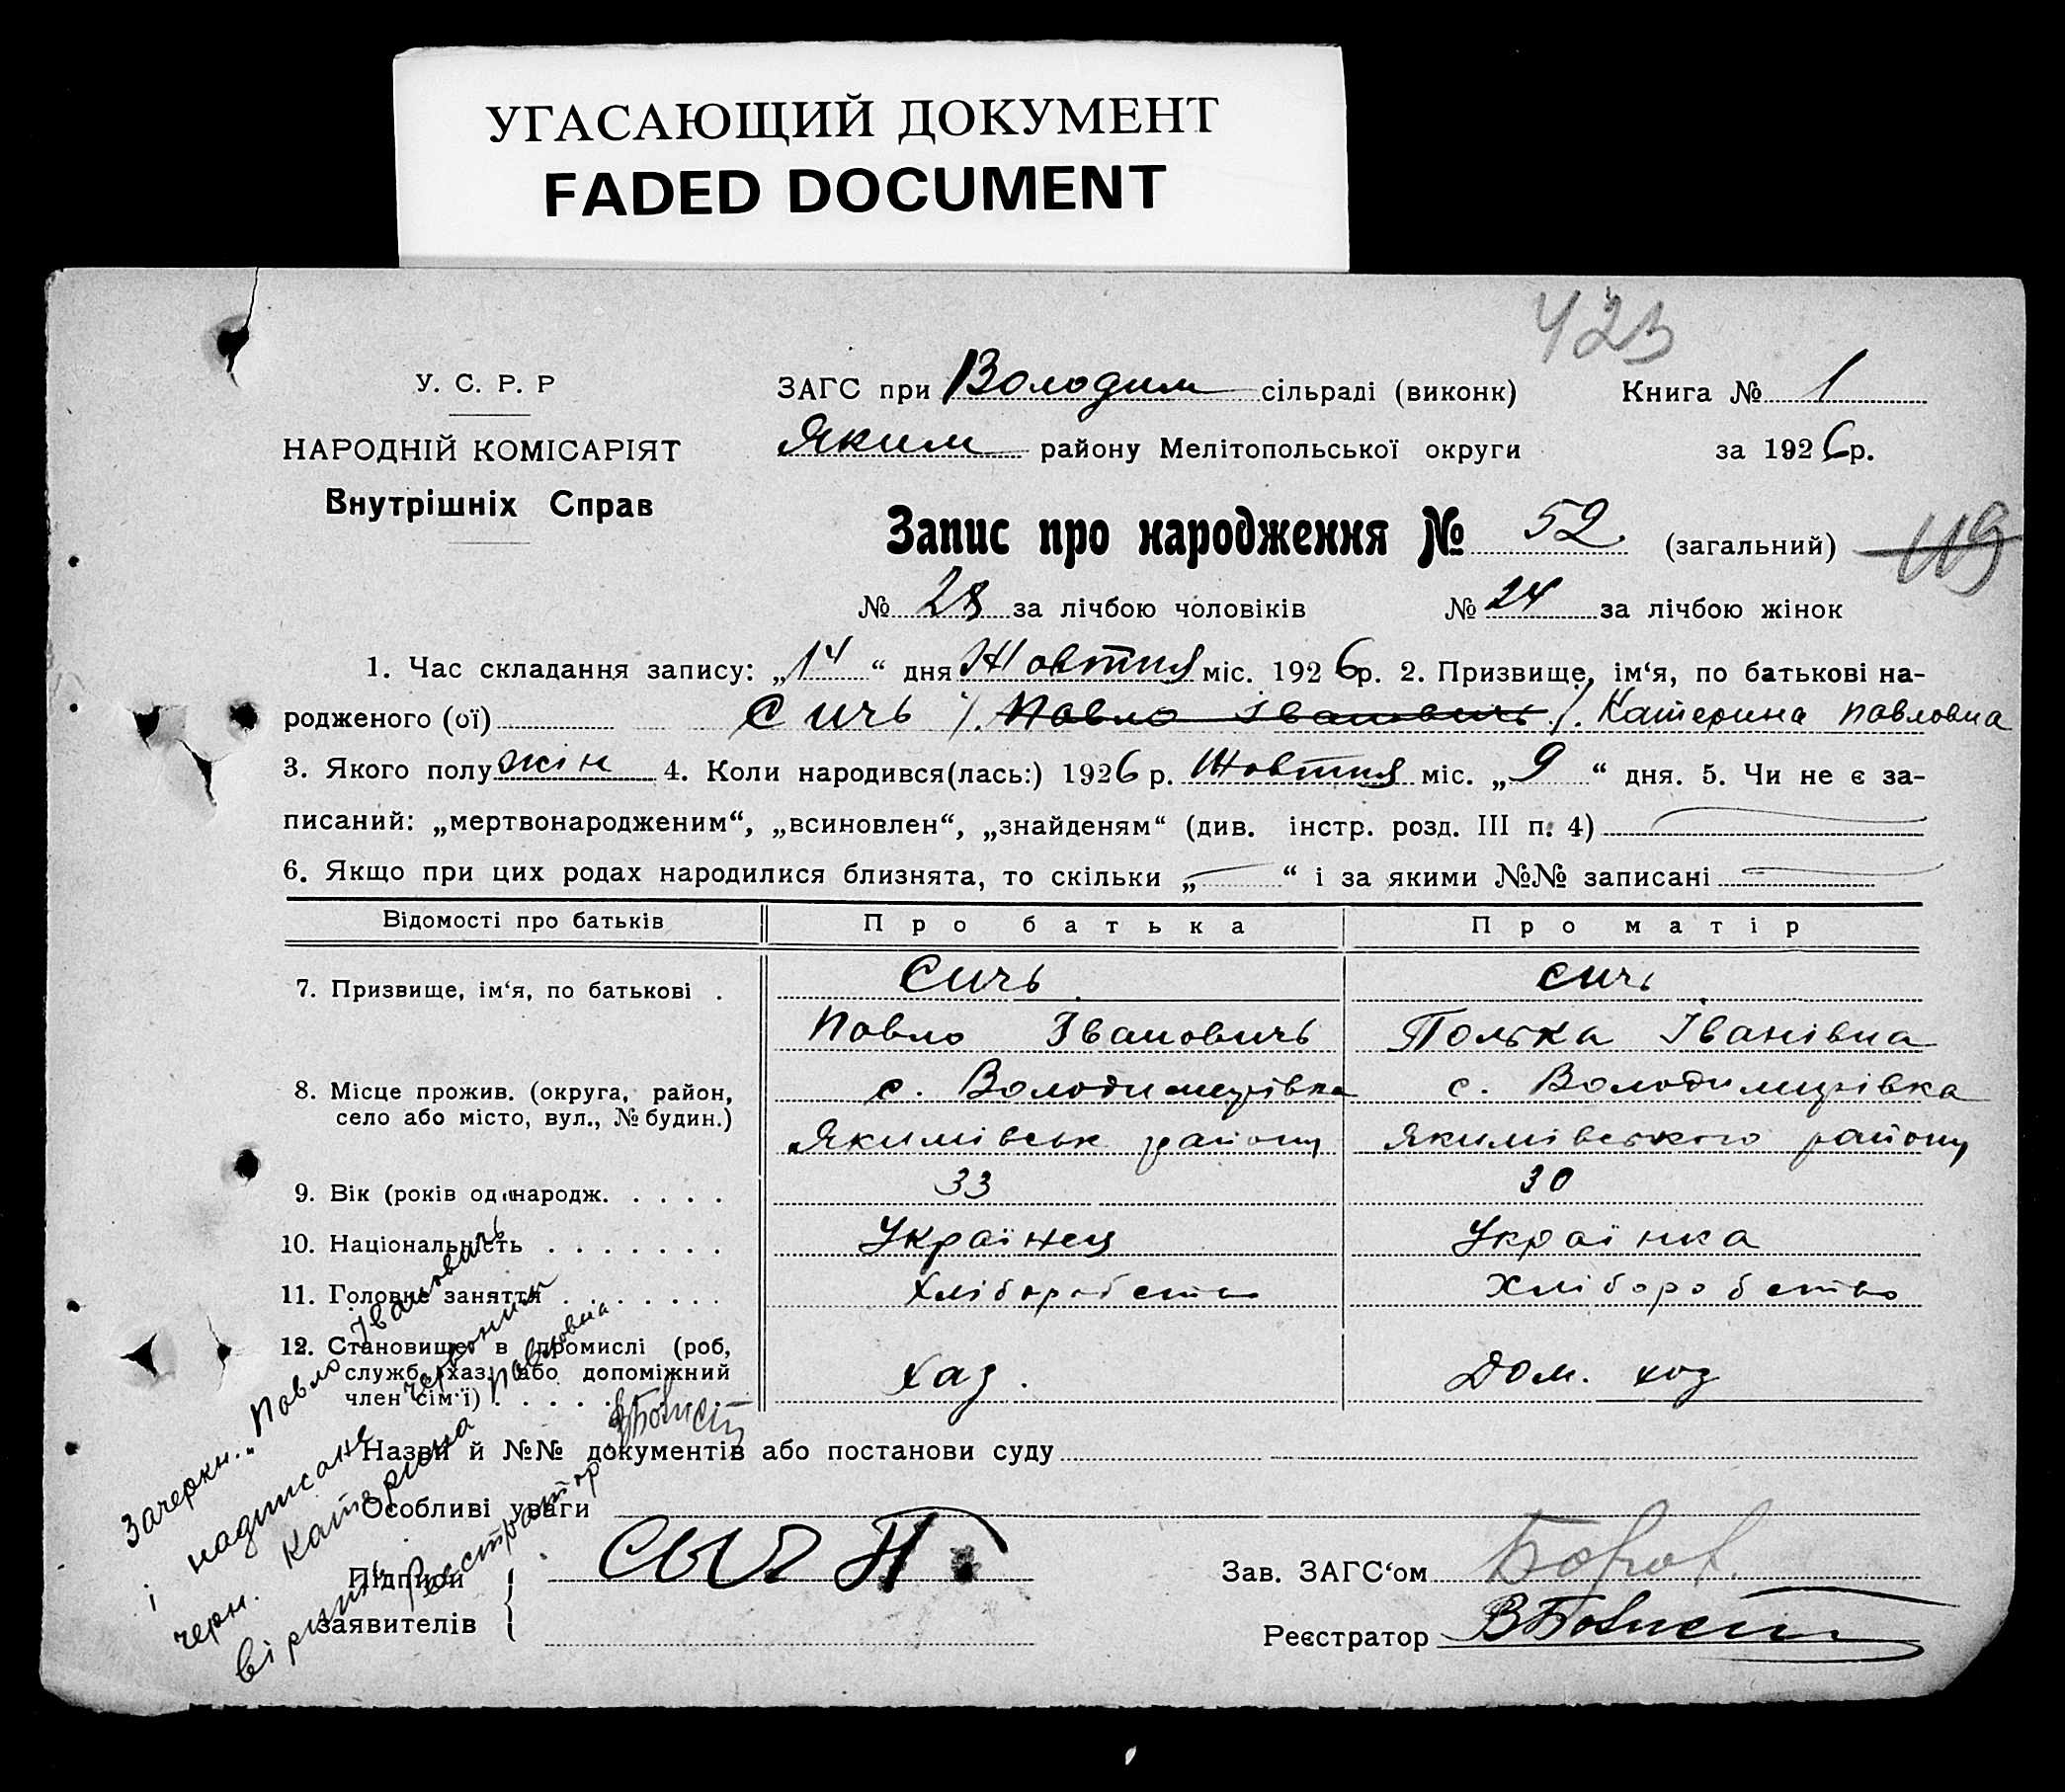 УГАСАЮЩИЙ ДОКУМЕНТ
FADED DOCUMENT
423
У. С. Р. Р
НАРОДНІЙ КОМІСАРІЯТ
Внутрішніх Справ
ЗАГС при Володим сільраді (виконк) Книга № 1
Яким району Мелітопольської округи за 1926 р.
Запис про народження № 52 (загальний) 119
№ 28 за лічбою чоловіків № 24 за лічбою жінок
1. Час складання запису: „14“ дня Жовтня міс. 1926 р. 2. Призвище, ім‘я, по батькові на-
родженого (ої) Сичь /. Павло Івановичь ./. Катерина Павловна
3. Якого полу жін 4. Коли народився(лась:) 1926 р. Жовтня міс. „9“ дня. 5. Чи не є за-
писаний: „мертвонародженим“, „всиновлен“, „знайденям“ (див. інстр. розд. III п. 4)
6. Якщо при цих родах народилися близнята, то скільки „ “ і за якими №№ записані
Відомості про батьків Про батька Про матір
7. Призвище, ім‘я, по батькові . Сичь Сичь
Павло Івановичь Полька Іванівна
8. Місце прожив. (округа, район, с. Володимирівка с. Володимирівка
село або місто, вул., № будин.) Якимівськ району Якимівського району
9. Вік (років од народж. . . . . 33 30
10. Національність . . . . . . . Українец Українка
11. Головне заняття . . . . . . . Хліборобство Хліборобство
12. Становище в промислі (роб,
службхаз. або допоміжний Хаз. Дом. хоз
член сім‘ї) . . . . . . . .
Назви й №№ документів або постанови суду
Особливі уваги
Підписи Сыч П. Зав. ЗАГС‘ом
заявителів Реєстратор
Зачеркн. „Павло Івановичь
і надписане червоним
черн. Катерина Павловна
вірить Реєстратор